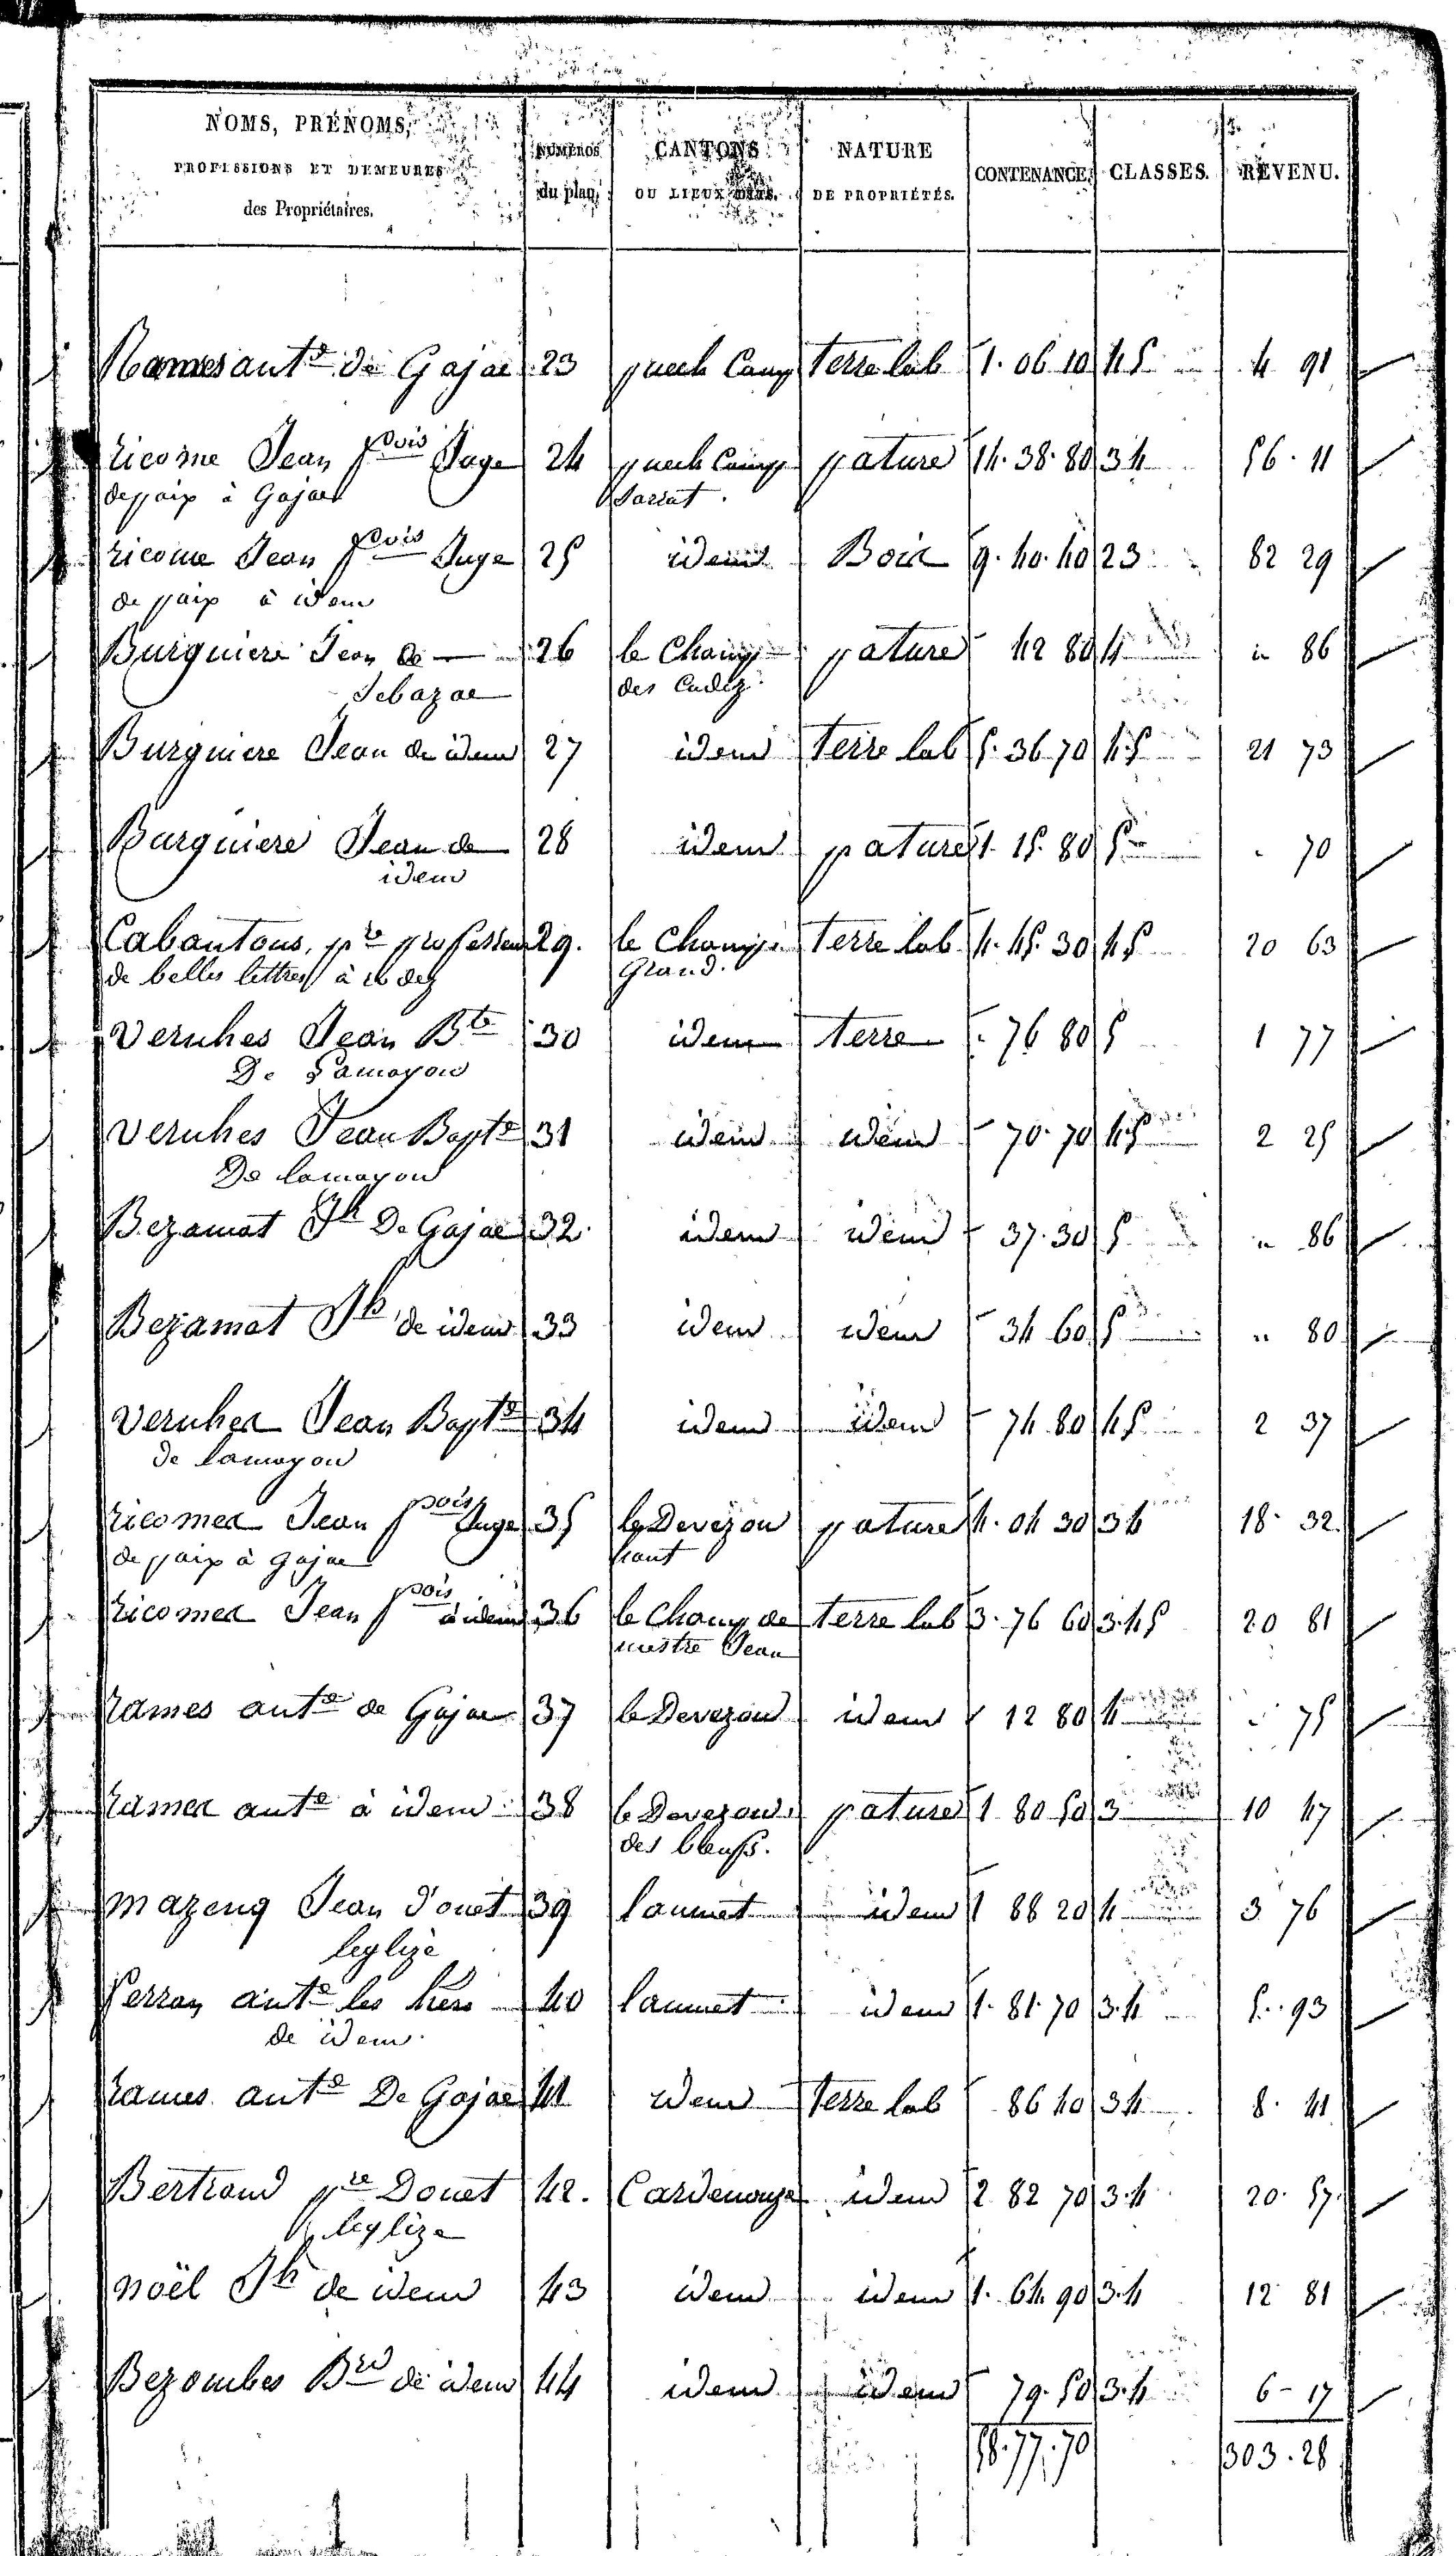 NOMS, PRÉNOMS, NUMÉROS CANTONS NATURE CONTENANCE. CLASSES. REVENU.
PROFESSIONS ET DEMEURES du plan. OU LIEUX DITS. DE PROPRIÉTÉS.
des Propriétaires.
Rames ante de Gajac 23 puech Camp terre lab 1. 06 10 45 4 91
ricome Jean fcois Juge 24 puech Camp pature 14. 38. 80 34 56. 11
de paix à Gajac Sarrat.
ricome Jean fcois Juge 25 idem Bois 9. 40. 40 23 82 29
de paix à idem
Burguiere Jean de 26 le Champ pature 42 80 4 " 86
Sebazac des Cadez.
Burguiere Jean de idem 27 idem terre lab 5. 36 70 4.5 21 73
Burguiere Jean de 28 idem pature 1. 15. 80 5 " 70
idem
Cabantous, pre professeur 29. le Champ terre lab 4. 45. 30 45 20 63
de belles lettres à rodez Grand.
Veruhes Jean Bte 30 idem terre 76 80 5 1 77
De Lamayou
Veruhes Jean Bapte 31 idem idem 70. 70 4.5 2 25
De lamayou
Bezamat Jh De Gajac 32. idem idem 37. 30 5 " 86
Bezamat Jh de idem 33 idem idem 34 60 5 " 80
Veruhes Jean Bapte 34 idem idem 74. 80 45 2 37
de lamayou
ricomes Jean fcois Juge 35 le Devezou pature 4. 04 30 34 18. 32.
de paix à Gajac haut
ricomes Jean fcois à idem 36 le Champ de terre lab 3. 76 60 3.45 20 81
mestre Jean
rames ante de Gajac 37 le Devezou idem 12 80 4 " 75
rames ante à idem 38 le Devezou pature 1 80 50 3 10 47
des bœufs.
mazenq Jean d'ouet 39 laumet idem 1 88 20 4 3 76
leglize
Serran ante les hers 40 laumet idem 1. 81. 70 3.4 5. 93
de idem.
rames ante De Gajac 41 idem terre lab 86 40 34 8. 41
Bertrand pre Douet 42. Cardenouze idem 2 82 70 3.4 20. 57
leglize
noël Jh de idem 43 idem idem 1. 64. 90 3.4 12 81
Bezombes Brd de idem 44 idem idem 79. 50 3.4 6 - 17
58. 77. 70 303. 28